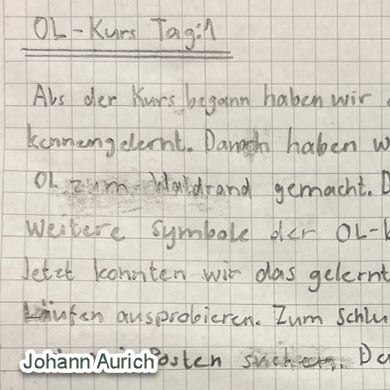 OL-Kurs Tag:1
Als der Kurs begann haben wir
kennengelernt. Danach haben w
OL zum Waldrand gemacht. D
weitere Symbole der OL-K
Jetzt konnten wir das gelernt
Läufen ausprobieren. Zum Schlu
Posten suchen. De
Johann Aurich